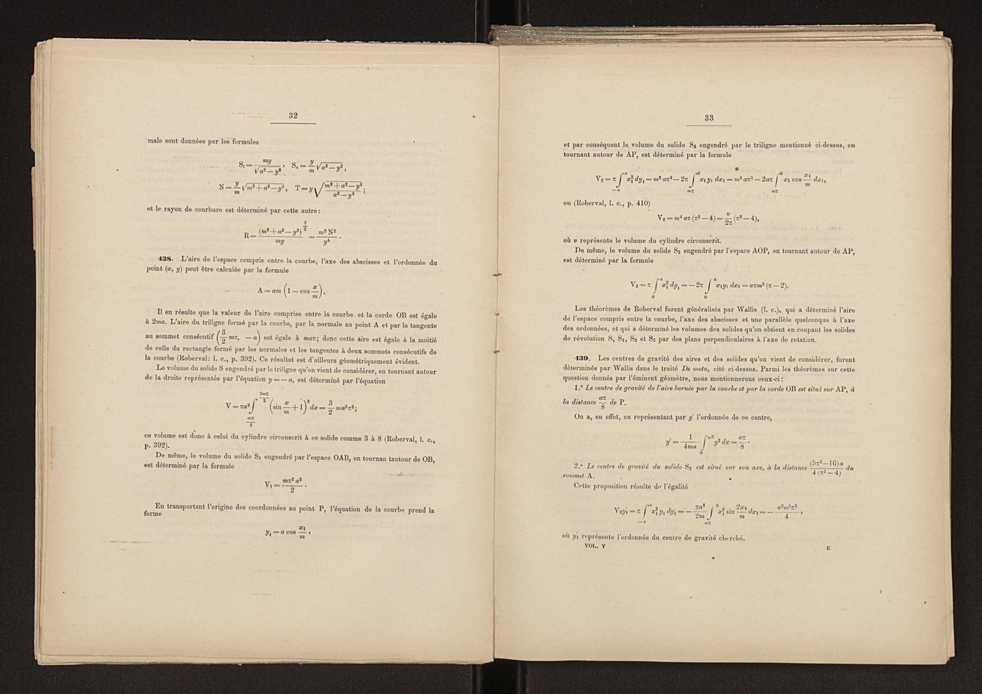 32
male sont données par les formules
S_t = my / √(a² − y²), S_n = y/m √(a² − y²),
N = y/m √(m² + a² − y²), T = y √((m² + a² − y²) / (a² − y²));
et le rayon de courbure est déterminé par cette autre:
R = (m² + a² − y²)^(3/2) / my = m² N³ / y⁴.
438. L'aire de l'espace compris entre la courbe, l'axe des abscisses et l'ordonnée du
point (x, y) peut être calculée par la formule
A = am (1 − cos x/m).
Il en résulte que la valeur de l'aire comprise entre la courbe et la corde OB est égale
à 2ma. L'aire du triligne formé par la courbe, par la normale au point A et par la tangente
au sommet consécutif (3/2 mπ, − a) est égale à maπ; donc cette aire est égale à la moitié
de celle du rectangle formé par les normales et les tangentes à deux sommets consécutifs de
la courbe (Roberval: l. c., p. 392). Ce résultat est d'ailleurs géométriquement évident.
Le volume du solide S engendré par le triligne qu'on vient de considérer, en tournant autour
de la droite représentée par l'équation y = − a, est déterminé par l'équation
V = πa² ∫ (sin x/m + 1)² dx = 3/2 ma²π²;
ce volume est donc à celui du cylindre circonscrit à ce solide comme 3 à 8 (Roberval, l. c.,
p. 392).
De même, le volume du solide S₁ engendré par l'espace OAB, en tournan tautour de OB,
est déterminé par la formule
V₁ = mπ² a² / 2.
En transportant l'origine des coordonnées au point P, l'équation de la courbe prend la
forme
y₁ = a cos x₁/m,
33
et par conséquent le volume du solide S₂ engendré par le triligne mentionné ci-dessus, en
tournant autour de AP, est déterminé par la formule
V₂ = π ∫ x₁² dy₁ = m² aπ³ − 2π ∫ x₁ y₁ dx₁ = m² aπ³ − 2aπ ∫ x₁ cos x₁/m dx₁,
ou (Roberval, l. c., p. 410)
V₂ = m² aπ (π² − 4) = v/2π (π² − 4),
où v représente le volume du cylindre circonscrit.
De même, le volume du solide S₃ engendré par l'espace AOP, en tournant autour de AP,
est déterminé par la formule
V₃ = π ∫ x₁² dy₁ = − 2π ∫ x₁y₁ dx₁ = aπm² (π − 2).
Les théorèmes de Roberval furent généralisés par Wallis (l. c.), qui a déterminé l'aire
de l'espace compris entre la courbe, l'axe des abscisses et une parallèle quelconque à l'axe
des ordonnées, et qui a déterminé les volumes des solides qu'on obtient en coupant les solides
de révolution S, S₁, S₂ et S₃ par des plans perpendiculaires à l'axe de rotation.
439. Les centres de gravité des aires et des solides qu'on vient de considérer, furent
déterminés par Wallis dans le traité De motu, cité ci-dessus. Parmi les théorèmes sur cette
question donnés par l'éminent géomètre, nous mentionnerons ceux-ci:
1.º Le centre de gravité de l'aire bornée par la courbe et par la corde OB est situé sur AP, à
la distance aπ/8 de P.
On a, en effet, en représentant par y′ l'ordonnée de ce centre,
y′ = 1/4ma ∫ y² dx = aπ/8.
2.º Le centre de gravité du solide S₂ est situé sur son axe, à la distance (5π² − 16)a / 4 (π² − 4) du
sommet A.
Cette proposition résulte de l'égalité
V₂y₁′ = π ∫ x₁² y₁ dy₁ = − πa²/2m ∫ x₁² sin 2x₁/m dx₁ = − a²m²π³/4,
où y₁′ représente l'ordonnée du centre de gravité cherché.
VOL. V
E